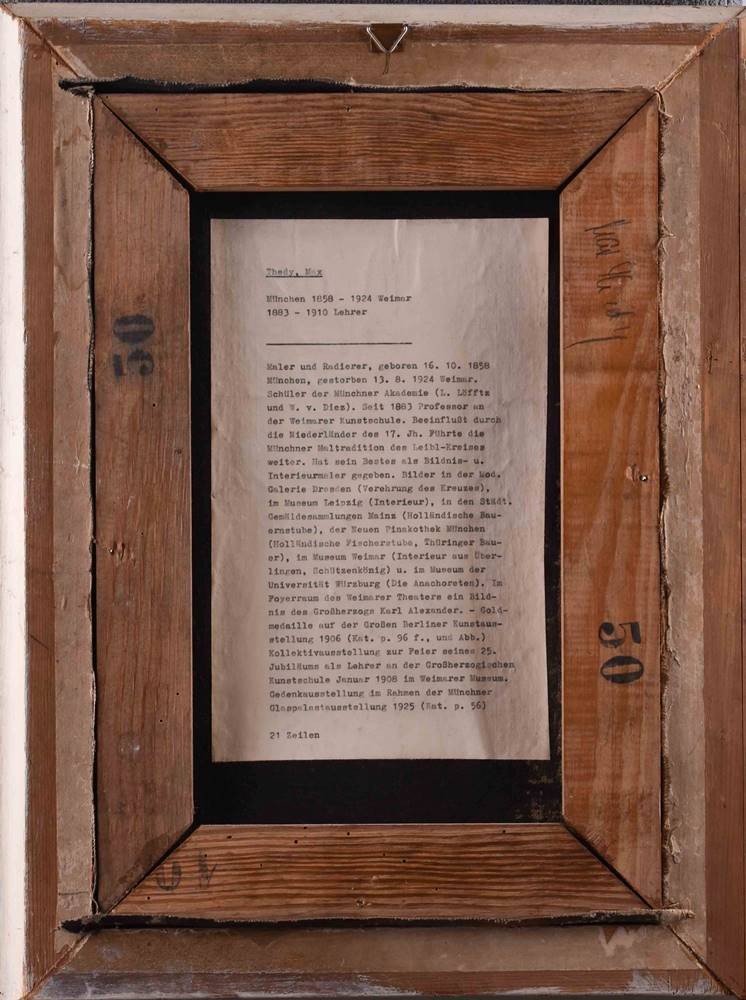 Thedy, Max
München 1858 - 1924 Weimar
1883 - 1910 Lehrer
Maler und Radierer, geboren 16. 10. 1858
München, gestorben 13. 8. 1924 Weimar.
Schüler der Münchner Akademie (L. Löfftz
und W. v. Diez). Seit 1883 Professor an
der Weimarer Kunstschule. Beeinflußt durch
die Niederländer des 17. Jh. Führte die
Münchner Maltradition des Leibl-Kreises
weiter. Hat sein Bestes als Bildnis- u.
Interieurmaler gegeben. Bilder in der Mod.
Galerie Dresden (Verehrung des Kreuzes),
im Museum Leipzig (Interieur), in den Städt.
Gemäldesammlungen Mainz (Holländische Bau-
ernstube), der Neuen Pinakothek München
(Holländische Fischerstube, Thüringer Bau-
er), im Museum Weimar (Interieur aus Über-
lingen, Schützenkönig) u. im Museum der
Universität Würzburg (Die Anachoreten). Im
Foyerraum des Weimarer Theaters ein Bild-
nis des Großherzogs Karl Alexander. - Gold-
medaille auf der Großen Berliner Kunstaus-
stellung 1906 (Kat. p. 96 f., und Abb.)
Kollektivausstellung zur Feier seines 25.
Jubiläums als Lehrer an der Großherzogischen
Kunstschule Januar 1908 im Weimarer Museum.
Gedenkausstellung im Rahmen der Münchner
Glaspalastausstellung 1925 (Kat. p. 56)
21 Zeilen
50
50